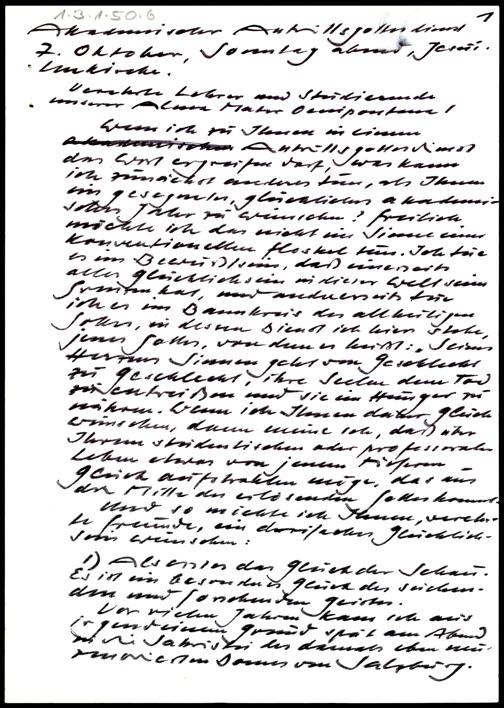 1.3.1.50.6
1
Akademischer Antrittsgottesdienst
7. Oktober, Sonntag abend, Jesui-
tenkirche.
Verehrte Lehrer und Studierende
unserer Alma Mater Oenipontana!
Wenn ich zu Ihnen in einem
akademischen Antrittsgottesdienst
das Wort ergreifen darf, was kann
ich zunächst anderes tun, als Ihnen
ein gesegnetes, glückliches akademi-
sches Jahr zu wünschen? Freilich
möchte ich das nicht im Sinne einer
konventionellen Floskel tun. Ich tue
es im Bewußtsein, daß einerseits
alles Glücklichsein in dieser Welt seine
Grenzen hat, und andererseits tue
ich es im Bannkreis des allheiligen
Gottes, in dessen Dienst ich hier stehe,
jenes Gottes, von dem es heißt: „Seines
Herzens Sinnen geht von Geschlecht
zu Geschlecht, ihre Seelen dem Tod
zu entreißen und sie im Hunger zu
nähren. Wenn ich Ihnen daher Glück
wünsche, dann meine ich, daß über
Ihrem studentischen oder professoralen
Leben etwas von jenem tieferen
Glück aufstrahlen möge, das aus
der Mitte des erlösenden Gottes kommt.
Und so möchte ich Ihnen, verehr-
te Freunde, ein dreifaches Glücklich-
sein wünschen:
1) Als erstes das Glück der Schau.
Es ist ein besonderes Glück des suchen-
den und forschenden Geistes.
Vor vielen Jahren kam ich aus
irgendeinem Grund spät am Abend
in die Sakristei des damals eben neu
renovierten Domes von Salzburg.